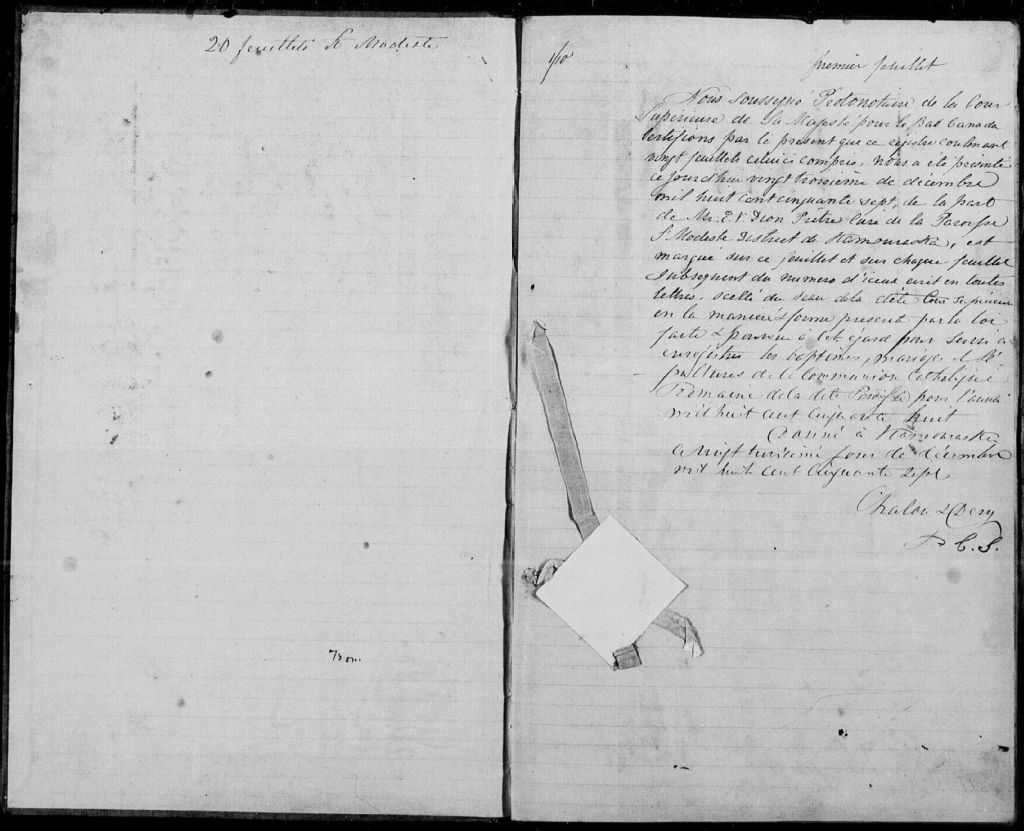 20 feuillets St Modeste
Bon.
premier feuillet
Nous soussigné Protonotaire de la Cour
Supérieure de Sa Majesté pour le Bas Canada
Certifions par le présent que ce régistre contenant
vingt feuillets celuici compris, nous a été présenté
ce jourd'hui vingt troisième de décembre
mil huit cent cinquante sept, de la part
de Mr. E. V. Dion Prêtre Curé de la Paroisse
St Modeste District de Kamouraska, est
marqué sur ce feuillet et sur chaque feuillet
subséquent du numero d'iceux écrit en toutes
lettres, scellé du sceau de la dite Cour Supérieure
en la manière & forme prescrit par la loi
faite & pourvue à cet égard pour servir à
enregistrer les baptêmes, mariages et Sé
pultures de la Communion Catholique
Romaine de la dite Paroisse pour l'année
mil huit cent cinquante huit
Donné à Kamouraska
ce vingt troisième jour de décembre
mil huit cent cinquante sept
& Dery
P. C. S.